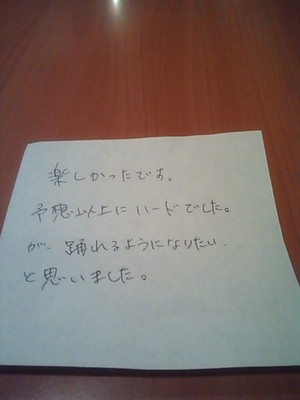 楽しかったです。
予想以上にハードでした。
が、踊れるようになりたい
と思いました。